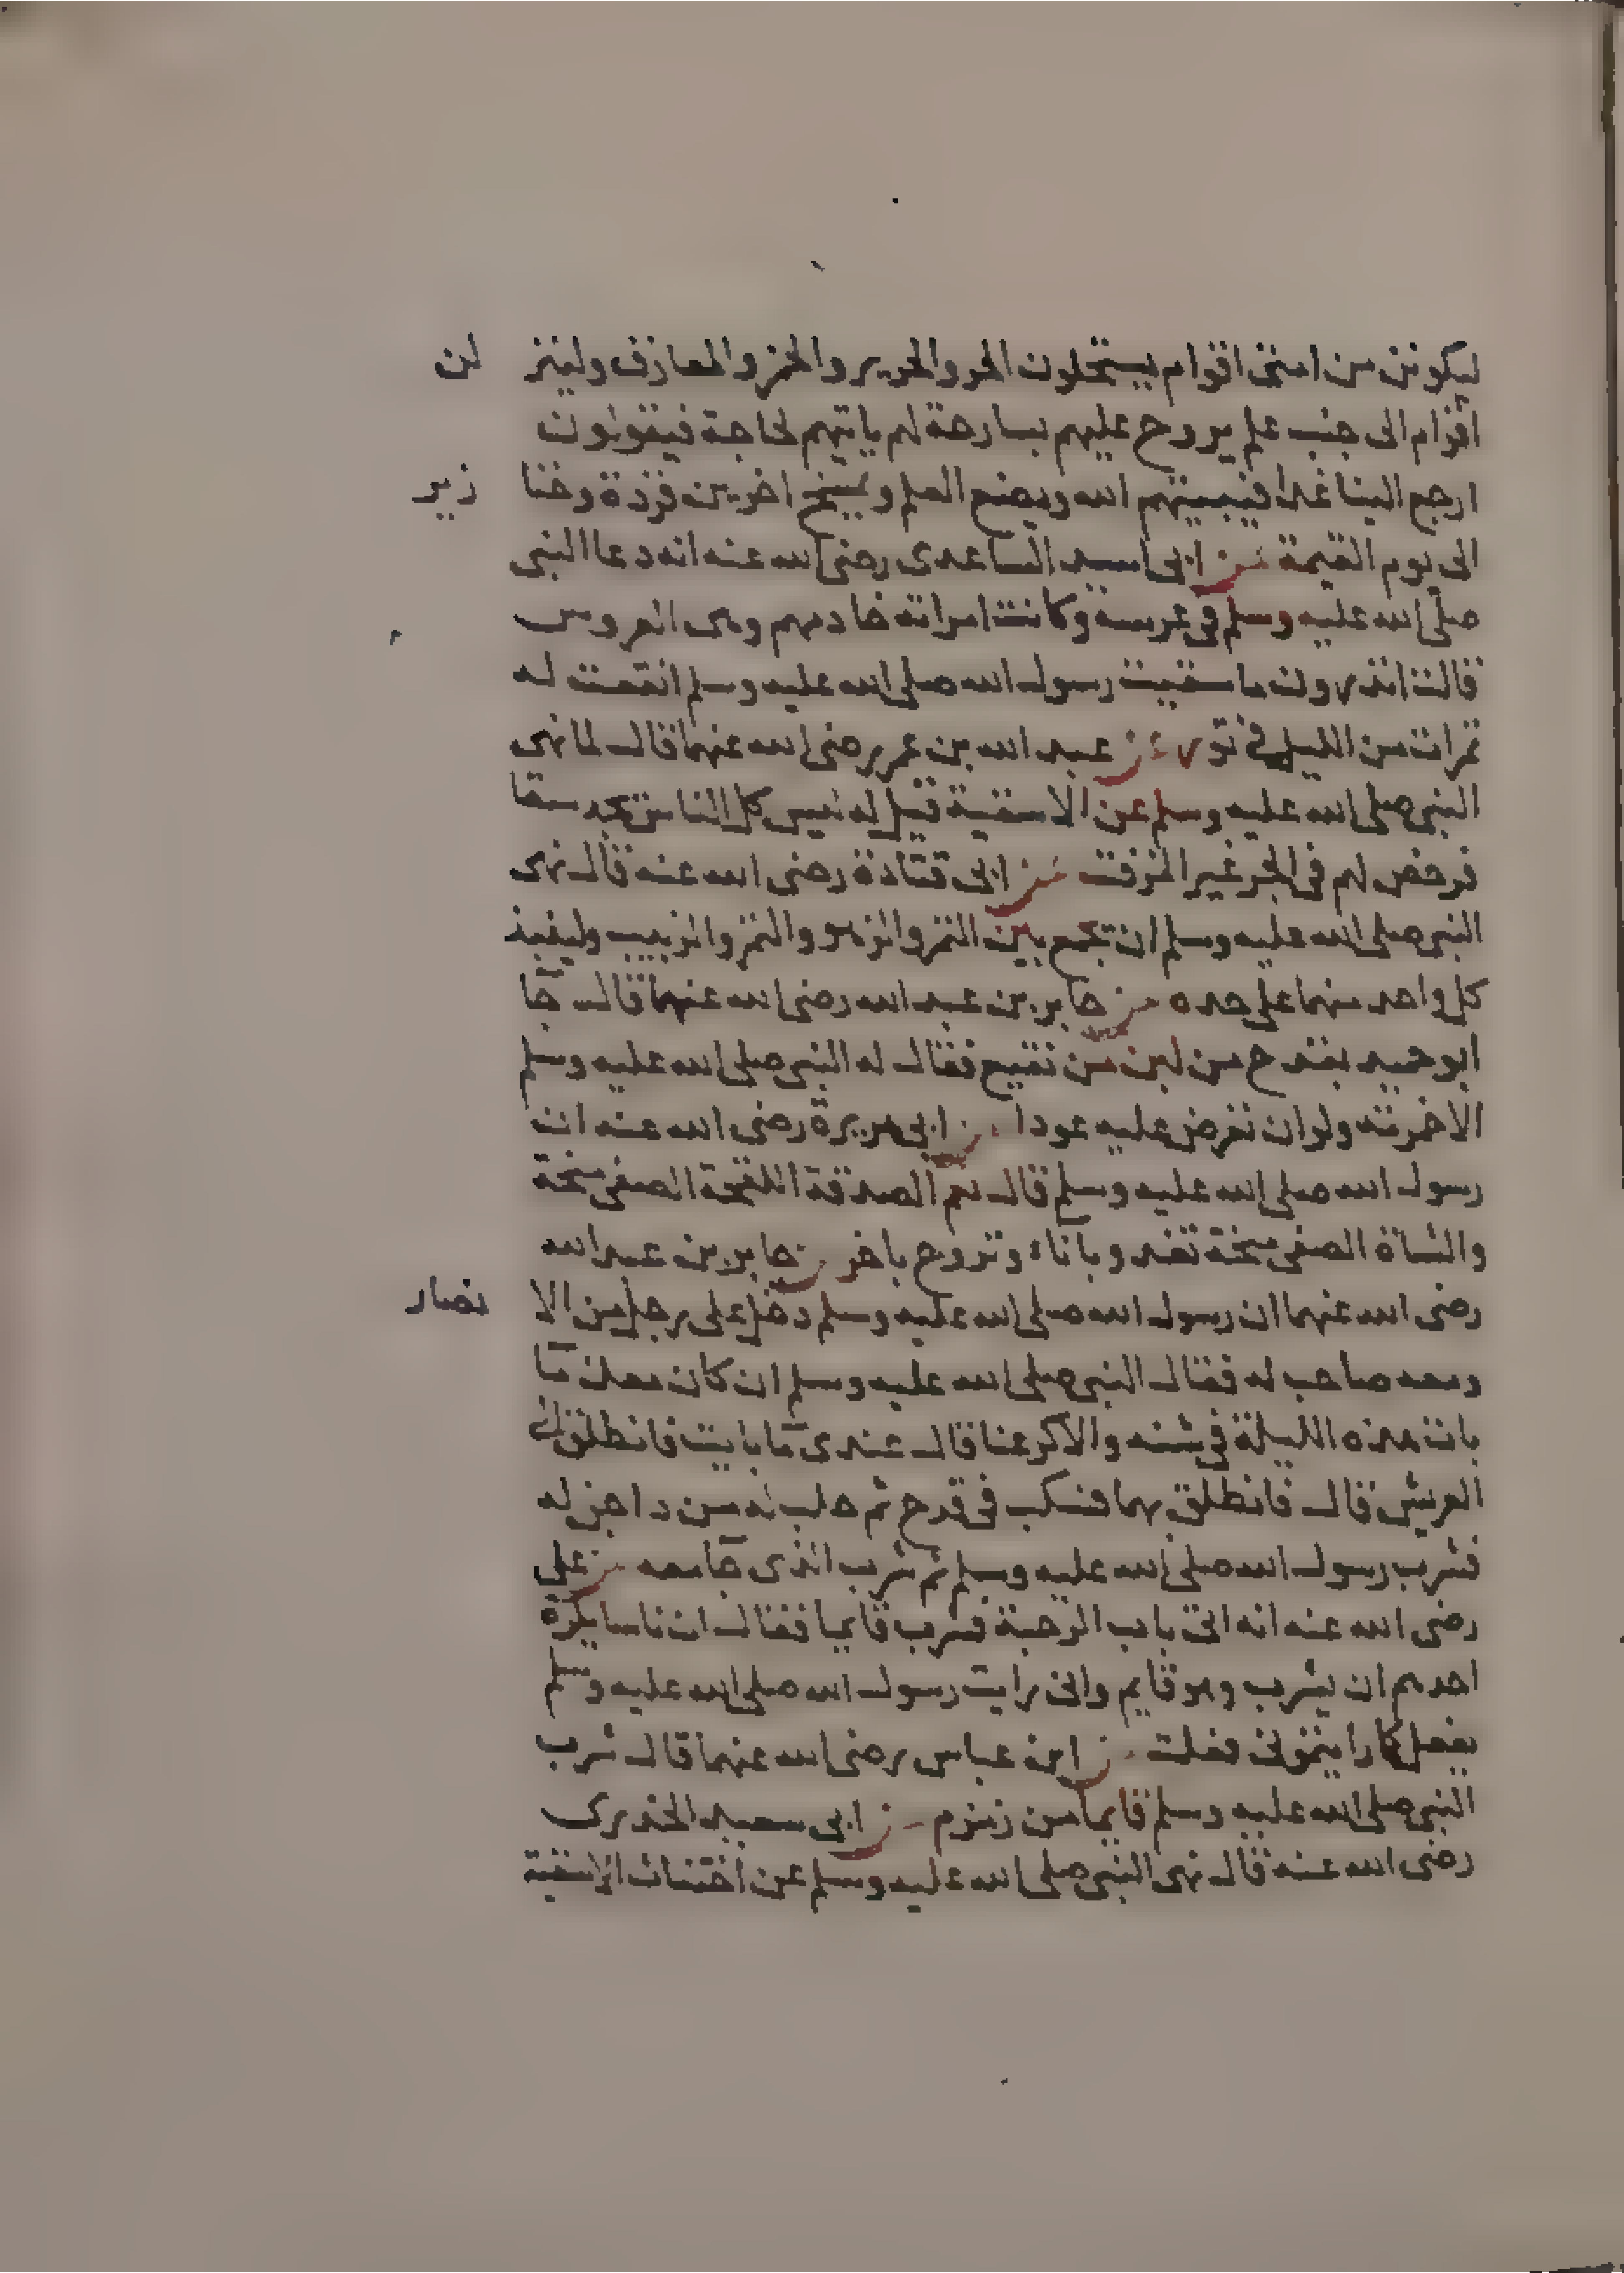 ليكونن من امتى اقوام يستحلون الحر والحرير والخمر والمعازف ولينز لن
اقوام الى جنب علم يروح عليهم بسارحة لهم ياتيهم لحاجة فيقولون
ارجع الينا غدا فيبيتهم الله ويضع العلم ويمسخ اخرين قردة وخنا زير
الى يوم القيمة عن ابى اسيد الساعدى رضى الله عنه انه دعا النبى
صلى الله عليه وسلم فى عرسه وكانت امراته خادمهم وهى العروس
قالت اتدرون ما سقيت رسول الله صلى الله عليه وسلم انقعت له
تمرات من الليل فى تور عن عبد الله بن عمر رضى الله عنهما قال لما نهى
النبى صلى الله عليه وسلم عن الاسقية قيل له ليس كل الناس تجد سقا
فرخص لهم فى الجر غير المزفت عن ابى قتادة رضى الله عنه قال نهى
النبى صلى الله عليه وسلم ان تجمع بين التمر والزهو والتمر والزبيب ولينبذ
كل واحد منهما على حده عن جابر بن عبد الله رضى الله عنهما قال جا
ابو حميد بقدح من لبن من نقيع فقال له النبى صلى الله عليه وسلم
الا خمرته ولو ان تعرض عليه عودا عن ابى هريرة رضى الله عنه ان
رسول الله صلى الله عليه وسلم قال نعم الصدقة اللقحة الصفى منحة
والشاة الصفى منحة تغد و باناء وتروح باخر عن جابر بن عبد الله
رضى الله عنهما ان رسول الله صلى الله عليه وسلم دخل على رجل من الا نصار
ومعه صاحب له فقال النبى صلى الله عليه وسلم ان كان معك مآ
بات هذه الليلة فى شنه والا كرعنا قال عندى مآ بايت فانطلق الى
العريش قال فانطلق بهما فسكب فى قدح ثم حلب له من داجن له
فشرب رسول الله صلى الله عليه وسلم ثم شرب الذى جآ معه عن على
رضى الله عنه انه اتى باب الرحبة فشرب قايما فقال ان ناسا يكره
احدهم ان يشرب وهو قايم وانى رايت رسول الله صلى الله عليه وسلم
يفعل كما رايتمونى فعلت عن ابن عباس رضى الله عنهما قال شرب
النبى صلى الله عليه وسلم قايما من زمزم عن ابى سعيد الخدرى
رضى الله عنه قال نهى النبى صلى الله عليه وسلم عن اختناث الاسقية